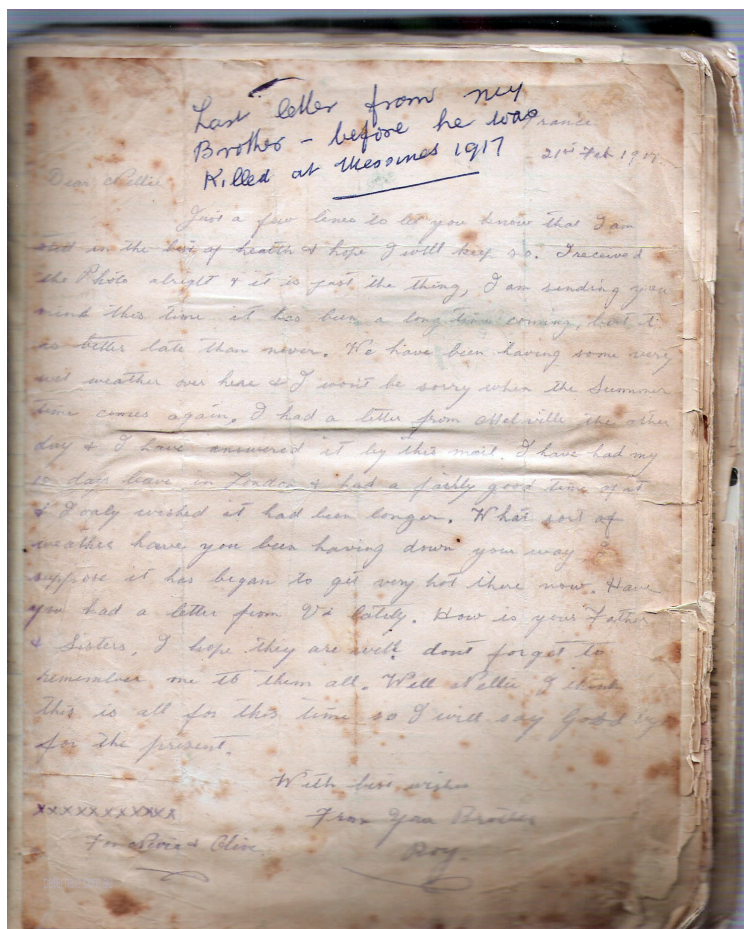 Last letter from my
Brother - before he was
Killed at Messines 1917
France
21st Feb 1917.
Dear Nellie
Just a few lines to let you know that I am
still in the best of health & hope I will keep so. I received
the Photo alright & it is just the thing, I am sending you
mind this time it has been a long time coming, but it
is better late than never. We have been having some very
wet weather over hear & I wont be sorry when the Summer
time comes again. I had a letter from Melville the other
day & I have answered it by this mail. I have had my
10 days leave in London & had a fairly good time of it
& I only wished it had been longer. What sort of
weather have you been having down your way I
suppose it has began to get very hot there now. Have
you had a letter from lately. How is your Father
& Sisters, I hope they are well dont forget to
remember me to them all. Well Nellie I think
this is all for this time so I will say Good bye
for the present.
With best wishes
From Your Brother
Roy.
xxxxxxxxxxx
For & Clive